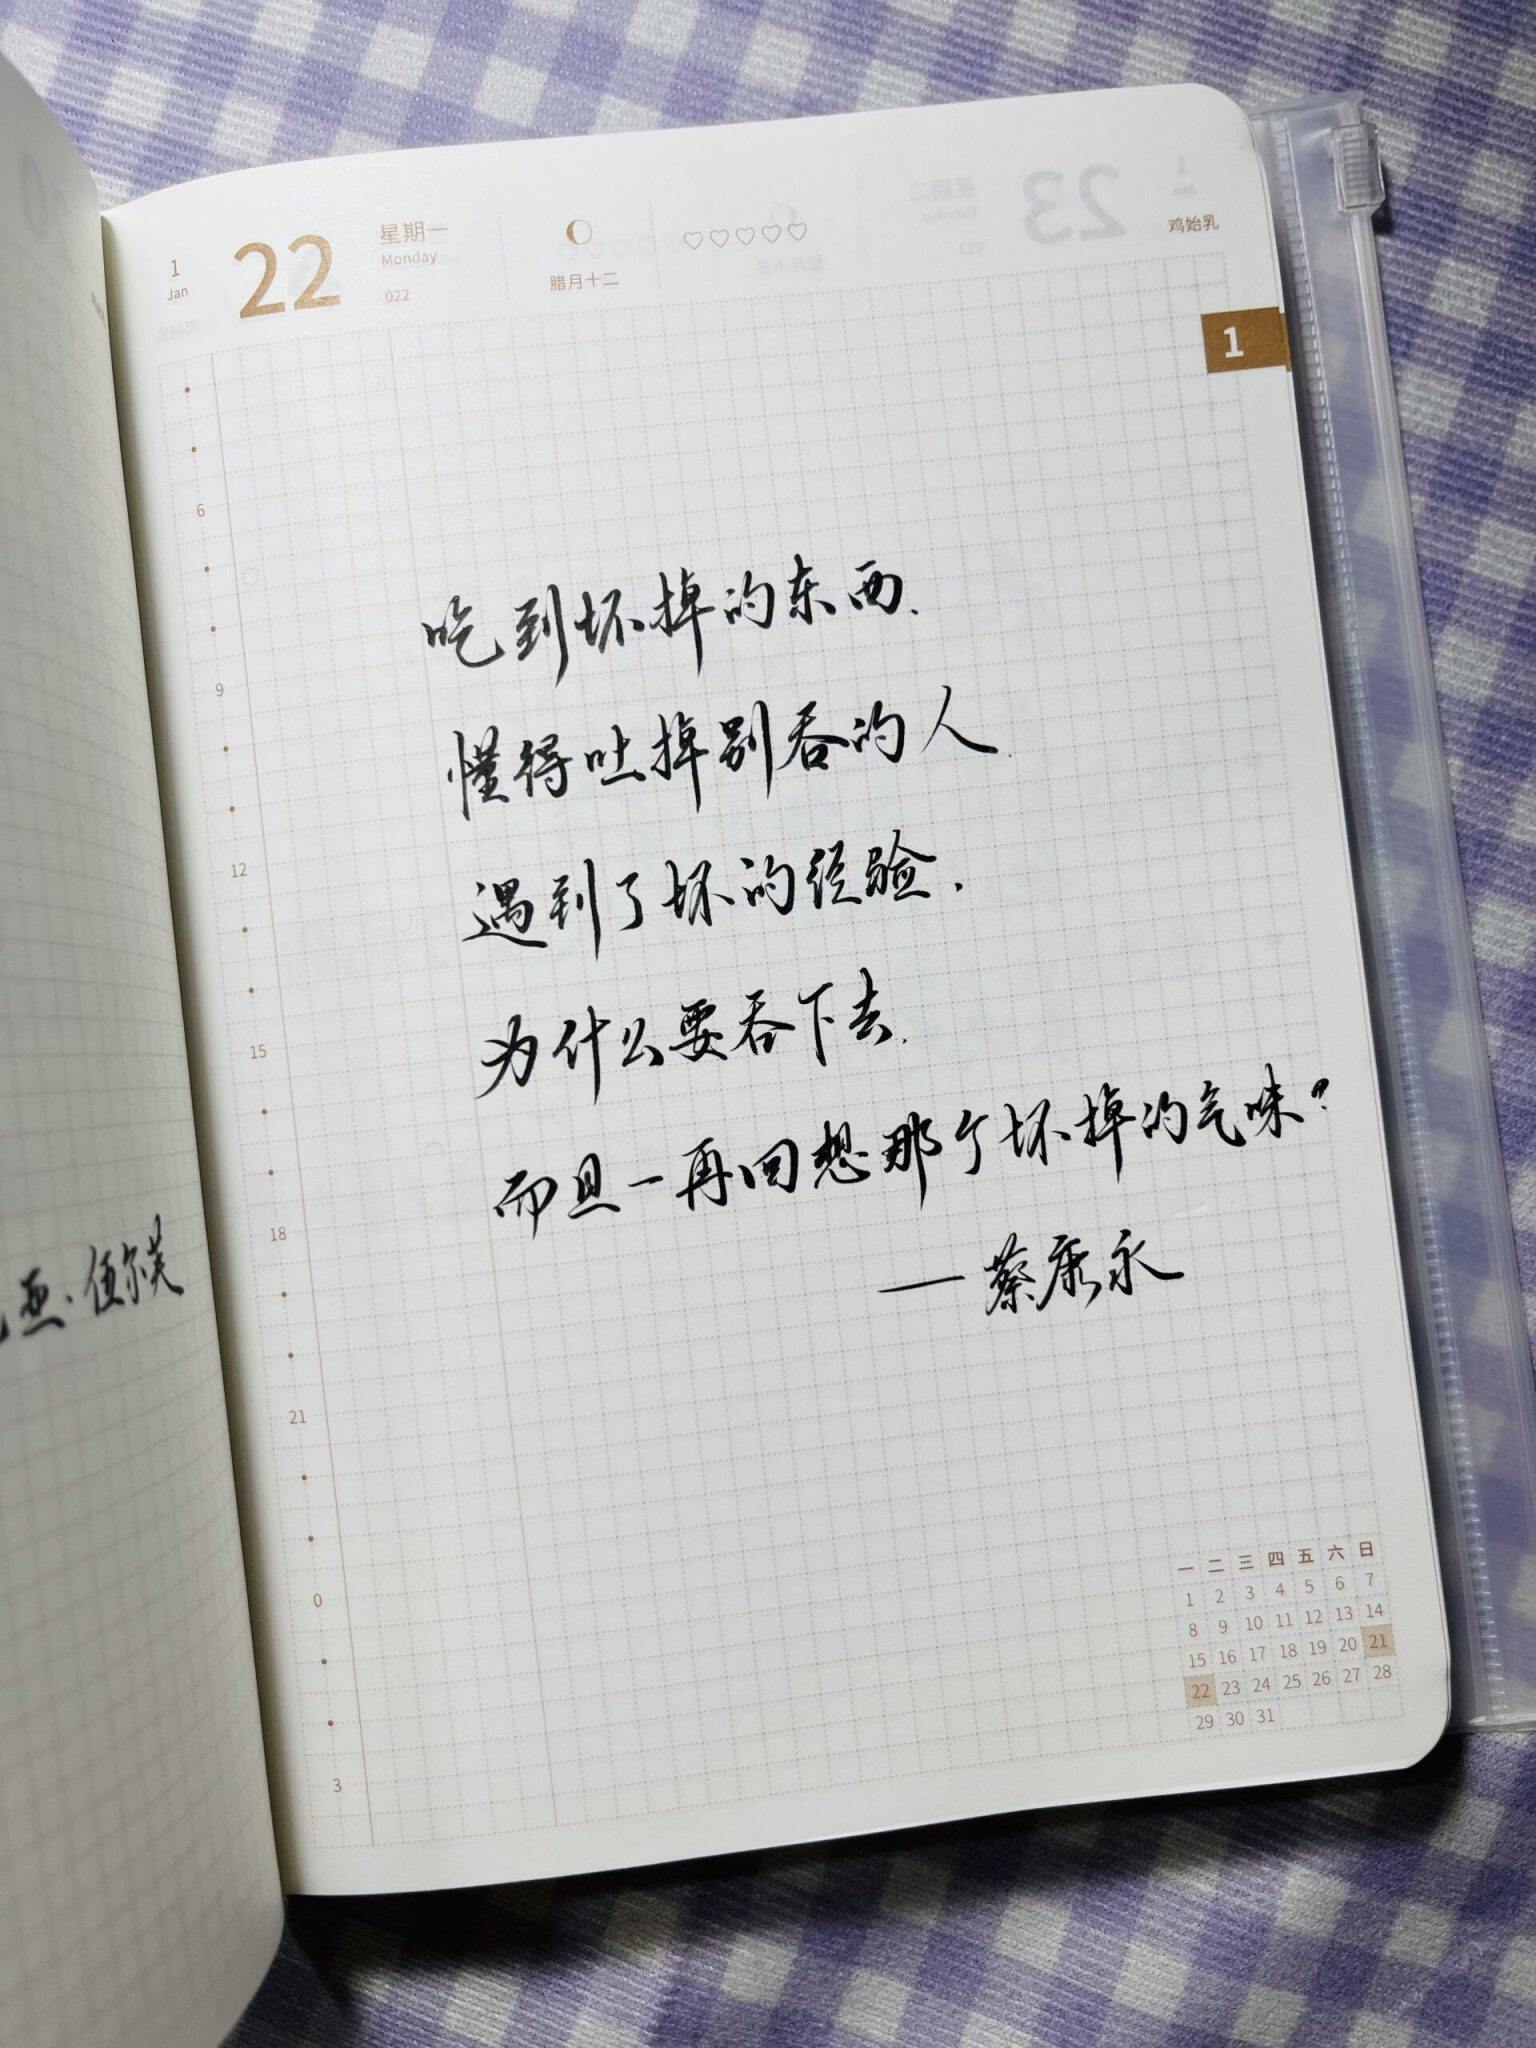 1
Jan
22
星期一
Monday
022
腊月十二
鸡始乳
1
6
9
12
15
18
21
0
3
吃到坏掉的东西.
懂得吐掉别吞的人.
遇到了坏的经验.
为什么要吞下去.
而且一再回想那个坏掉的气味?
——蔡康永
亚·伍尔芙
一 二 三 四 五 六 日
1 2 3 4 5 6 7
8 9 10 11 12 13 14
15 16 17 18 19 20 21
22 23 24 25 26 27 28
29 30 31
23